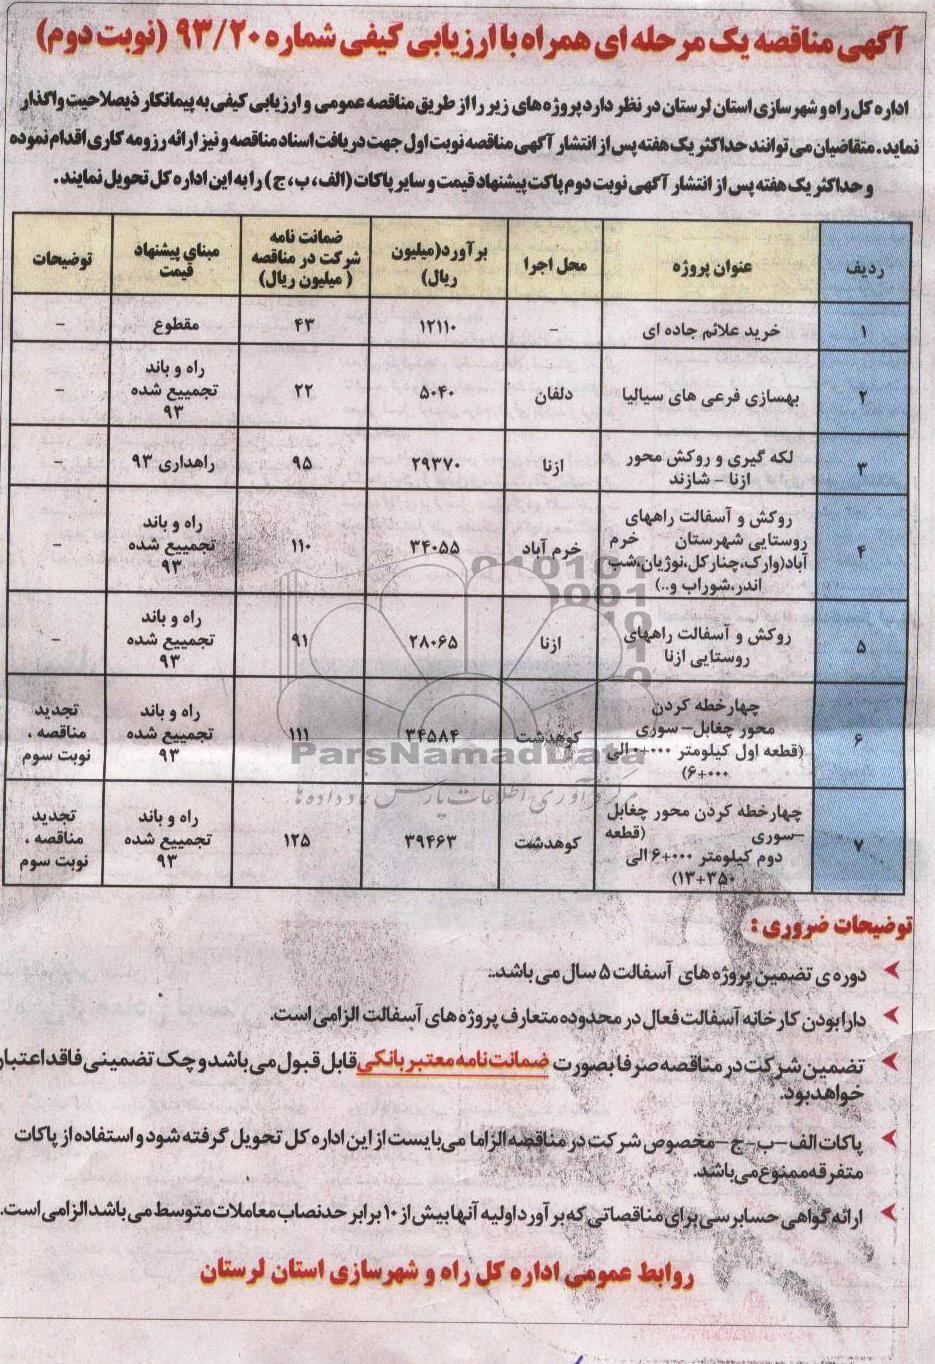 آگهی مناقصه یک مرحله ای همراه با ارزیابی کیفی شماره ۹۳/۲۰ (نوبت دوم)
اداره کل راه و شهرسازی استان لرستان در نظر دارد پروژه های زیر را از طریق مناقصه عمومی و ارزیابی کیفی به پیمانکار ذیصلاحیت واگذار
نماید. متقاضیان می توانند حداکثر یک هفته پس از انتشار آگهی مناقصه نوبت اول جهت دریافت اسناد مناقصه و نیز ارائه رزومه کاری اقدام نموده
و حداکثر یک هفته پس از انتشار آگهی نوبت دوم پاکت پیشنهاد قیمت و سایر پاکات (الف، ب، ج) را به این اداره کل تحویل نمایند.
ردیف
عنوان پروژه
محل اجرا
برآورد(میلیون
ریال)
ضمانت نامه
شرکت در مناقصه
( میلیون ریال)
مبنای پیشنهاد
قیمت
توضیحات
۱
خرید علائم جاده ای
–
۱۲۱۱۰
۴۳
مقطوع
–
۲
بهسازی فرعی های سیالیا
دلفان
۵۰۴۰
۲۲
راه و باند
تجمییع شده
۹۳
–
۳
لکه گیری و روکش محور
ازنا - شازند
ازنا
۲۹۳۷۰
۹۵
راهداری ۹۳
–
۴
روکش و آسفالت راههای
روستایی شهرستان خرم
آباد(وارک،چنارکل،نوژیان،شب
اندر،شوراب و..)
خرم آباد
۳۴۰۵۵
۱۱۰
راه و باند
تجمییع شده
۹۳
–
۵
روکش و آسفالت راههای
روستایی ازنا
ازنا
۲۸۰۶۵
۹۱
راه و باند
تجمییع شده
۹۳
–
۶
چهارخطه کردن
محور چغابل– سوری
(قطعه اول کیلومتر ۰۰۰+۰ الی
۰۰۰+۶)
کوهدشت
۳۴۵۸۴
۱۱۱
راه و باند
تجمییع شده
۹۳
تجدید
مناقصه ،
نوبت سوم
۷
چهارخطه کردن محور چغابل
–سوری (قطعه
دوم کیلومتر ۰۰۰+۶ الی
۳۵۰+۱۳)
کوهدشت
۳۹۴۶۳
۱۲۵
راه و باند
تجمییع شده
۹۳
تجدید
مناقصه ،
نوبت سوم
ParsNamadData
مرکز فرآوری اطلاعات پارس نماد داده ها
توضیحات ضروری :
دوره ی تضمین پروژه های آسفالت ۵ سال می باشد..
دارا بودن کارخانه آسفالت فعال در محدوده متعارف پروژه های آسفالت الزامی است.
تضمین شرکت در مناقصه صرفا بصورت ضمانت نامه معتبر بانکی قابل قبول می باشد و چک تضمینی فاقد اعتبار
خواهد بود.
پاکات الف –ب–ج –مخصوص شرکت در مناقصه الزاما می بایست از این اداره کل تحویل گرفته شود و استفاده از پاکات
متفرقه ممنوع می باشد.
ارائه گواهی حسابرسی برای مناقصاتی که برآورد اولیه آنها بیش از ۱۰ برابر حد نصاب معاملات متوسط می باشد الزامی است.
روابط عمومی اداره کل راه و شهرسازی استان لرستان